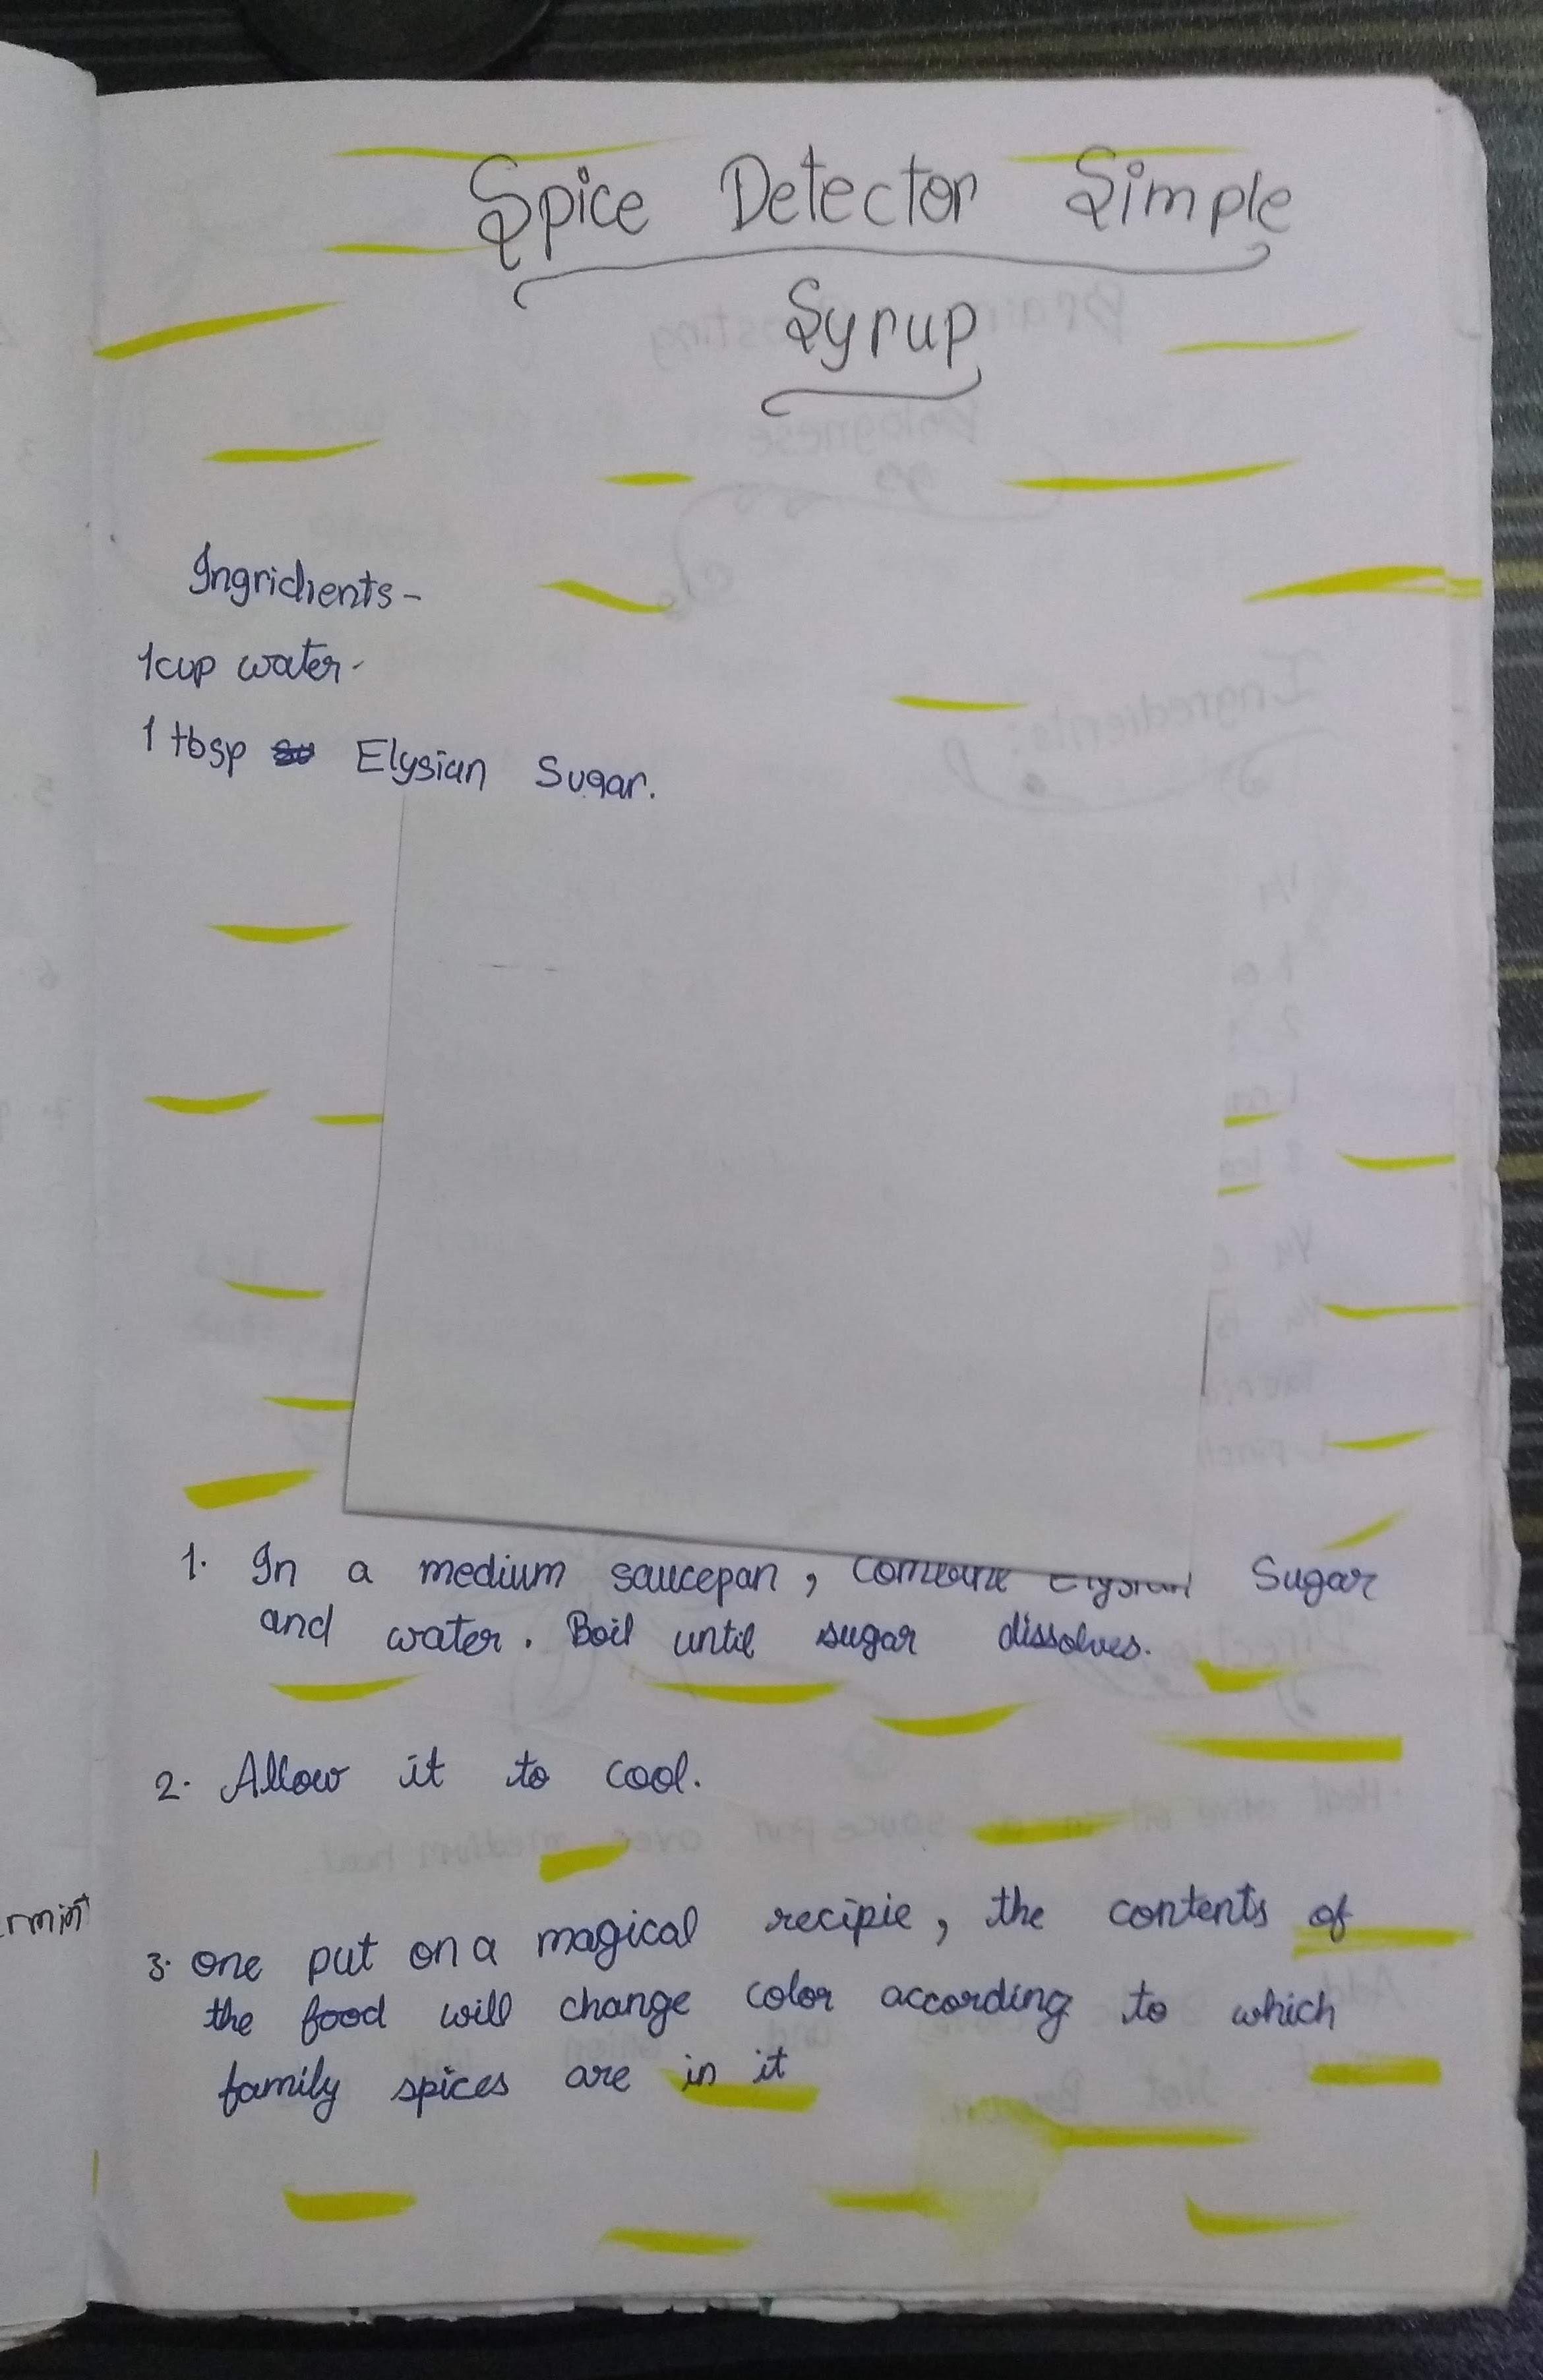 Spice Detector Simple
Syrup
Ingridients -
1 cup water -
1 tbsp Elysian Sugar.
1. In a medium saucepan, combine Elysian Sugar
and water. Boil until sugar dissolves.
2. Allow it to cool.
3. one put on a magical recipie, the contents of
the food will change color according to which
family spices are in it